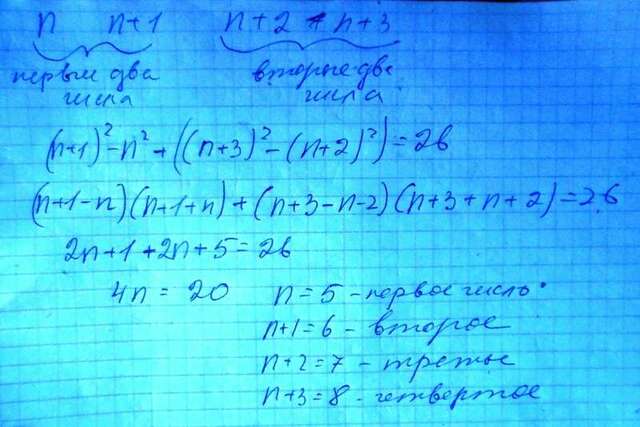 n n+1 n+2 + n+3
первые два вторые две
числа числа
(n+1)² - n² + ((n+3)² - (n+2)²) = 26
(n+1-n)(n+1+n) + (n+3-n-2)(n+3+n+2) = 26
2n+1+2n+5 = 26
4n = 20 n = 5 - первое число.
n+1 = 6 - второе
n+2 = 7 - третье
n+3 = 8 - четвертое